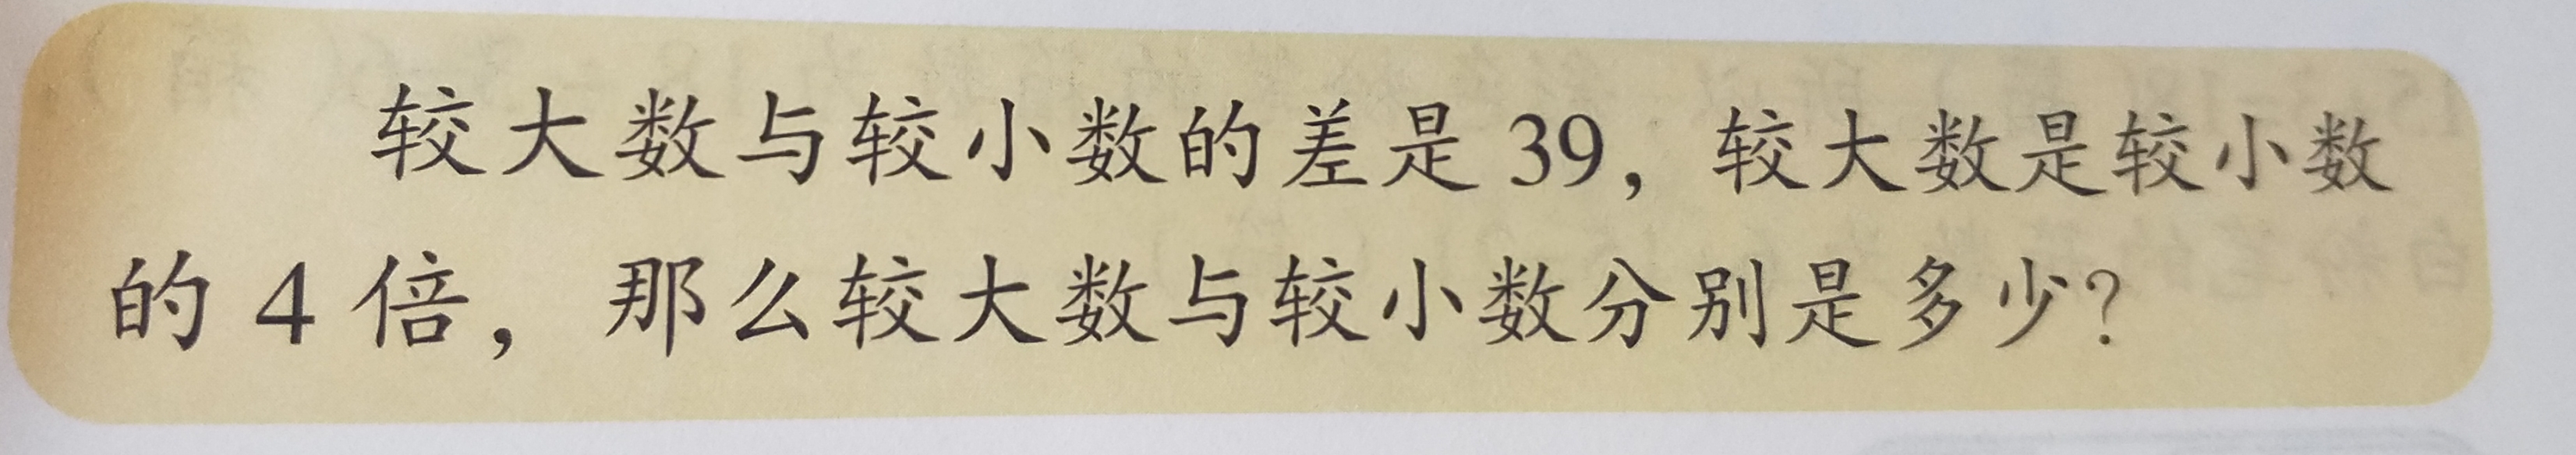 较大数与较小数的差是39，较大数是较小数
的4倍，那么较大数与较小数分别是多少？